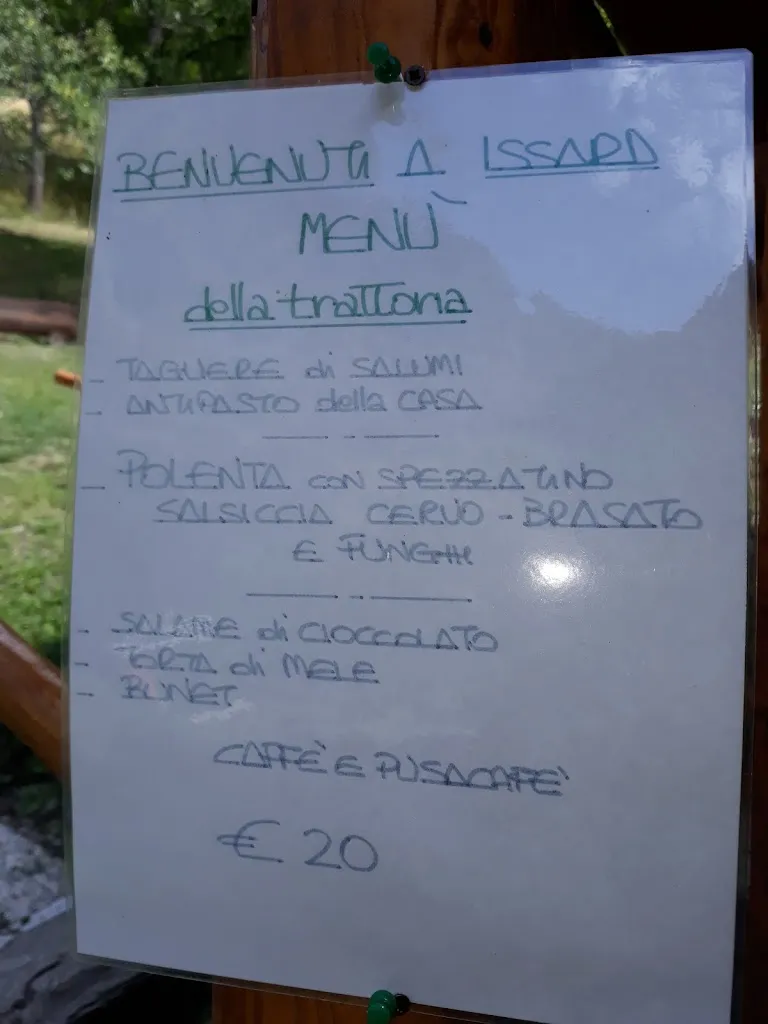 BENVENUTI A ISSARA
MENÙ
della trattoria
- TAGLIERE di SALUMI
- ANTIPASTO della CASA
- POLENTA con SPEZZATINO
SALSICCIA CERVO - BRASATO
E FUNGHI
- SALAME di CIOCCOLATO
- TORTA di MELE
- BUNET
CAFFÈ E PUSACAFÈ
€ 20